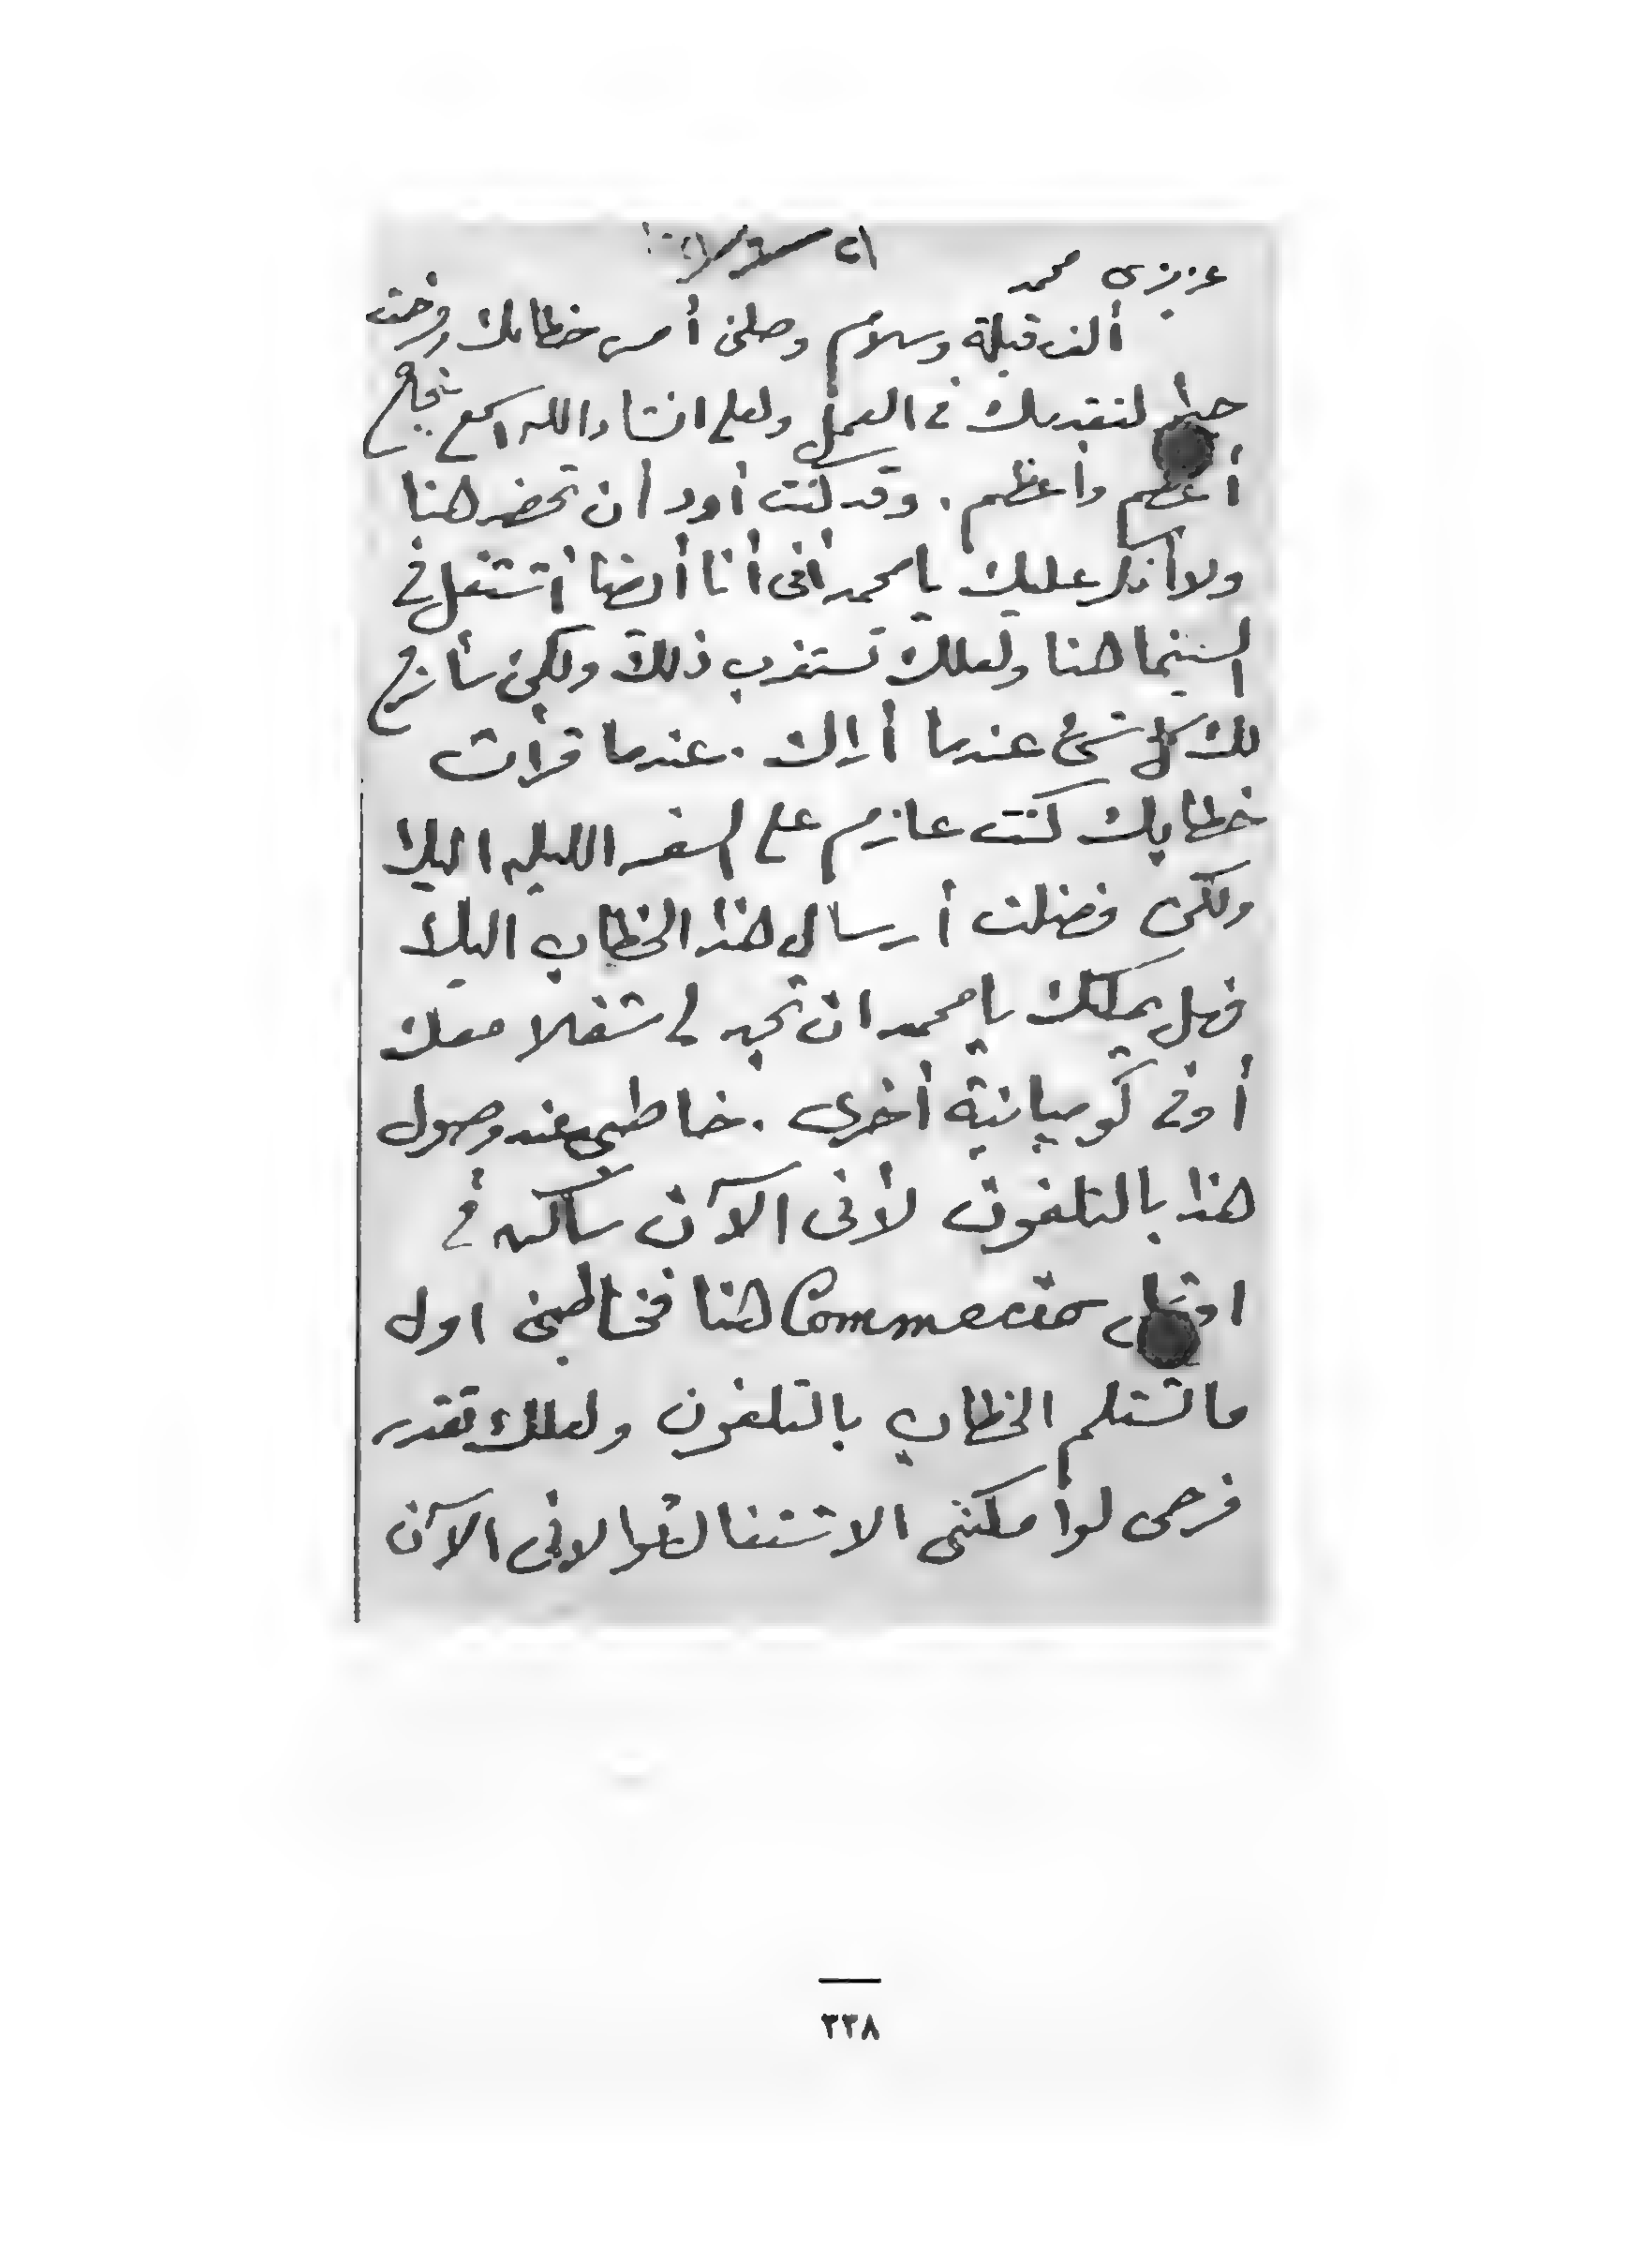 عزيزى محمد
ألف قبلة وسلام وصلنى أمس خطابك وفرحت
جدا لتقدمك فى العمل ولعلى انشاء الله اسمع بنجاح
أعظم وأعظم . وقد كنت أود أن تحضر هنا
ولا أنكر عليك يا محمد أنى أنا أيضا أشتغل فى
السينما هنا ولعلك تستغرب ذلك ولكن سأشرح
لك كل شىء عندما أراك . عندما قرأت
خطابك كنت عازم على السفر الليله
ولكن فضلت أرسال هذا الخطاب
فهل يمكنك يا محمد ان تجد لى شغلا معك
أو فى كومبانية أخرى . خاطبنى عند وصول
هذا بالتلفون لأنى الآن ساكن فى
اوتيل Commercio هنا فخاطبنى اول
ما تستلم الخطاب بالتلفون ولعلك تقدر
فرحى لو أمكننى الاشتغال لأنى الآن
٣٣٨